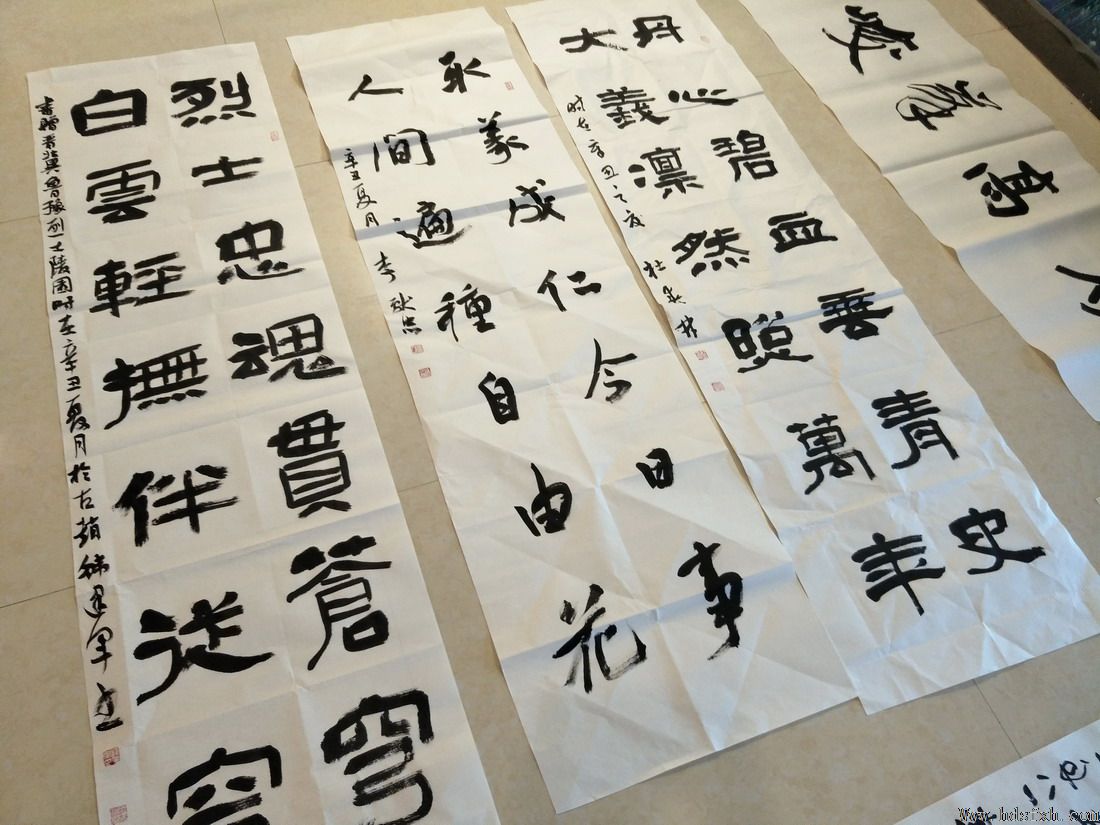 烈士忠魂貫蒼穹
白雲輕撫伴從容
書贈晋冀魯豫烈士陵園時在辛丑夏月於古趙
取義成仁今日事
人間遍種自由花
辛丑夏月 李
丹心碧血垂青史
大義凛然照萬年
時在辛丑之夏 杜
萬
Www.hdsfxh.com